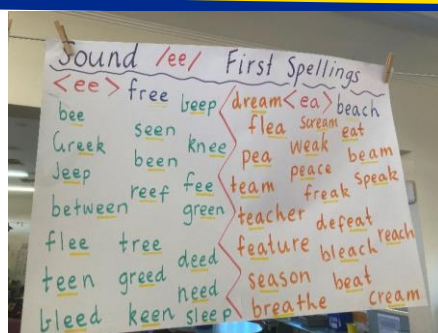 Sound /ee/ First Spellings
<ee> free beep
bee seen
Greek been knee
Jeep reef fee
between green
flee tree deed
teen greed need
bleed keen sleep
dream <ea> beach
flea scream eat
pea weak beam
team peace speak
freak
teacher defeat
feature bleach reach
season beat
breathe cream